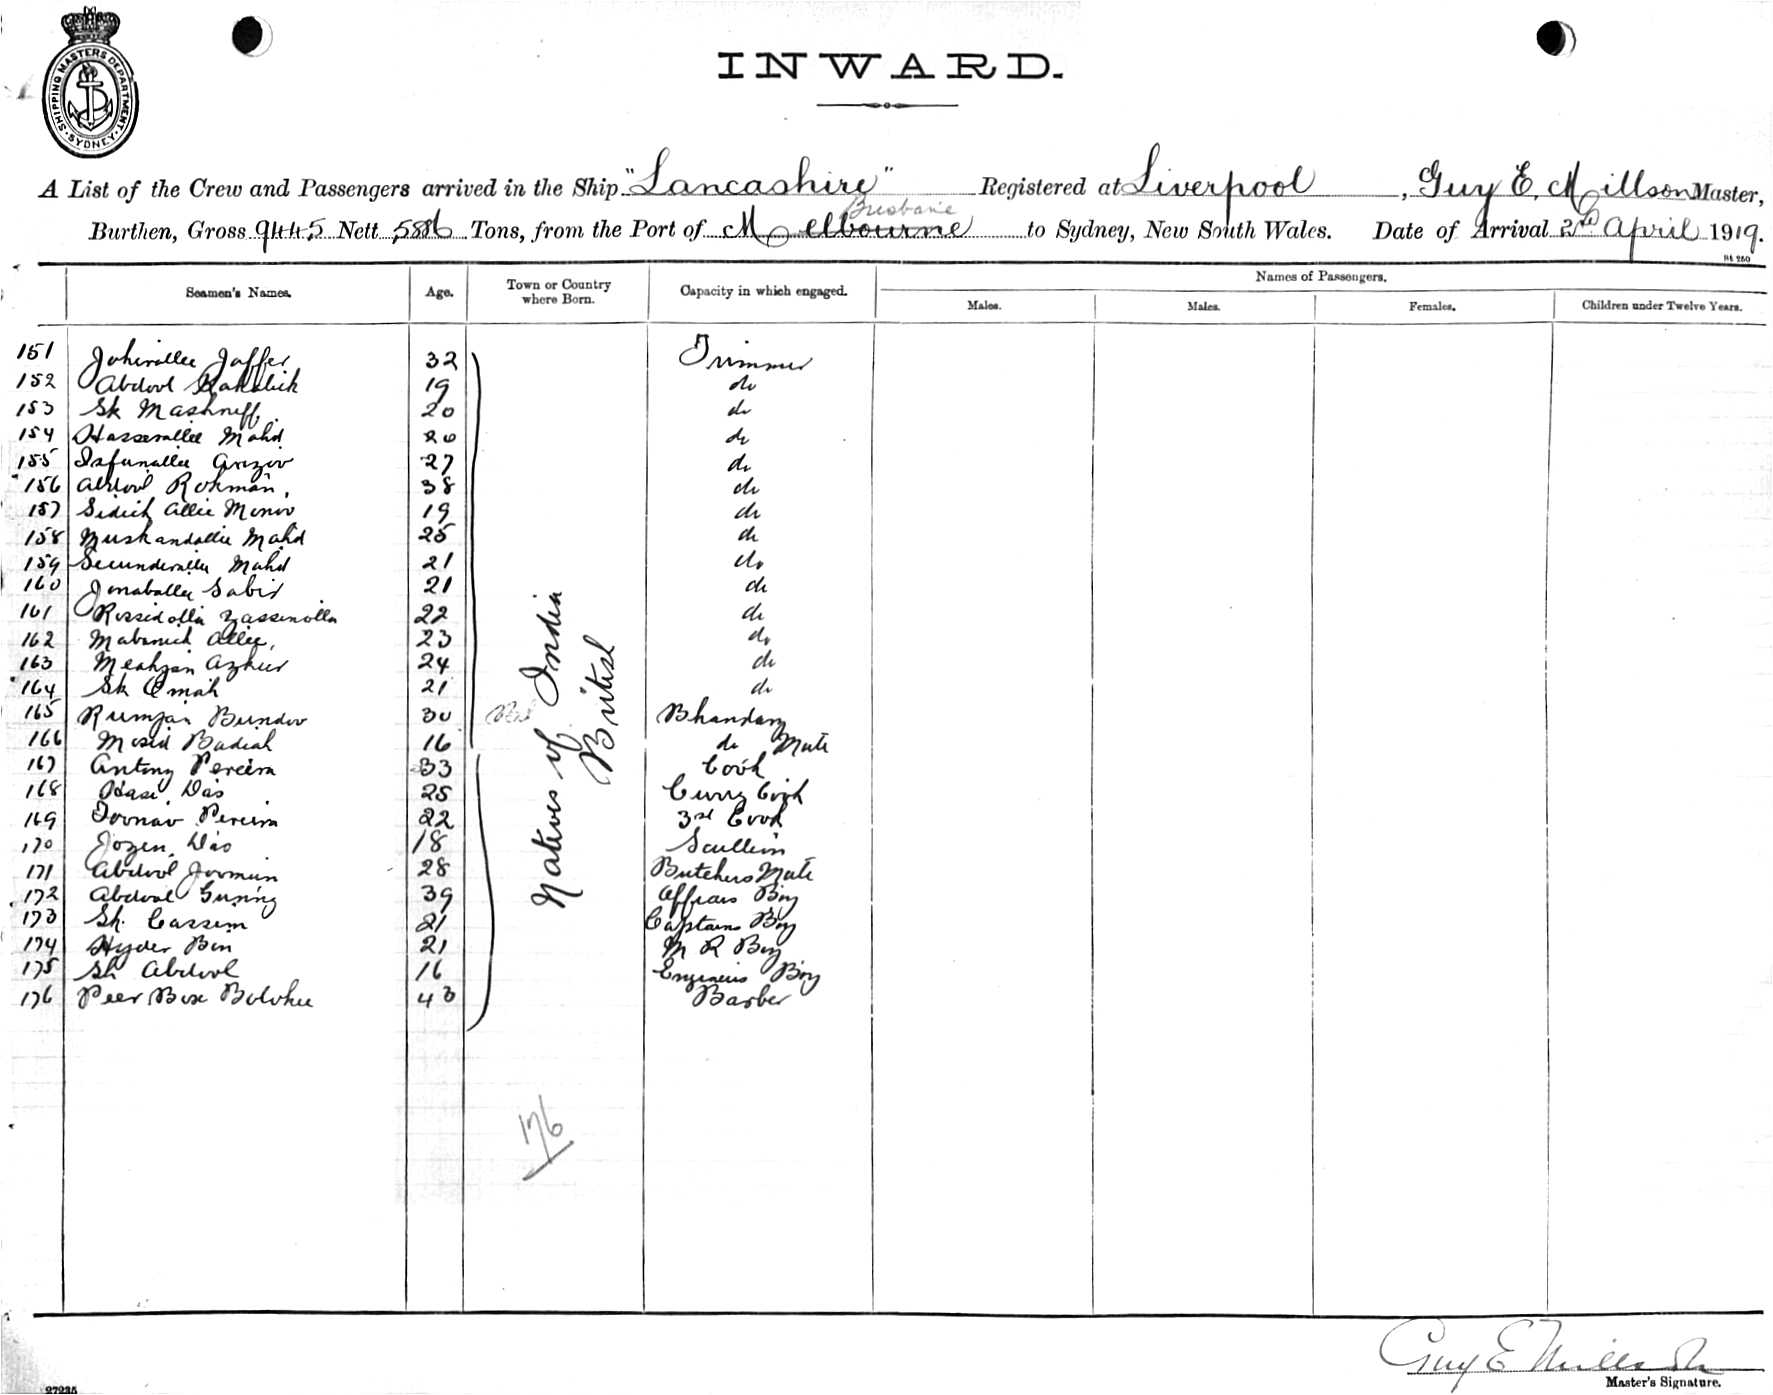 SHIPPING MASTERS DEPARTMENT
SYDNEY
INWARD.
A List of the Crew and Passengers arrived in the Ship "Lancashire" Registered at Liverpool, Guy E. Millson Master,
Brisbane
Burthen, Gross 9445 Nett 5886 Tons, from the Port of Melbourne to Sydney, New South Wales. Date of Arrival 2nd April 1919.
Seamen's Names. Age. Town or Country where Born. Capacity in which engaged. Names of Passengers.
Males. Males. Females. Children under Twelve Years.
151 Jaffer 32 Trimmer
152 Abdool 19 do
153 Sk Mashruff 20 do
154 Hasserallee Mahd 20 do
155 27 do
156 Abdool Rohman, 38 do
157 Sidick Allie 19 do
158 Muskandallie Mahd 25 do
159 Secunderallee Mahd 21 do
160 Jonaballee Sabir 21 do
161 22 do
162 Allee, 23 do
163 Meahjan Azhur 24 do
164 Sk Omah 21 do
165 Rumjan Bundoo 30 Bhandary
166 Mosid Badiah 16 do Mate
167 Antony Pereira 33 Cook
168 Das 25 Curry Cook
169 Pereira 22 3rd Cook
170 Jogen Das 18 Scullion
171 Abdool 28 Butchers Mate
172 Abdool 39 Boy
173 Sk. Cassim 21 Captains Boy
174 Hyder Bux 21 M R Boy
175 Sk Abdool 16 Engineers Boy
176 Peer Bux 43 Barber
Natives of India
British
176
Guy E Millson
Master's Signature.
27235